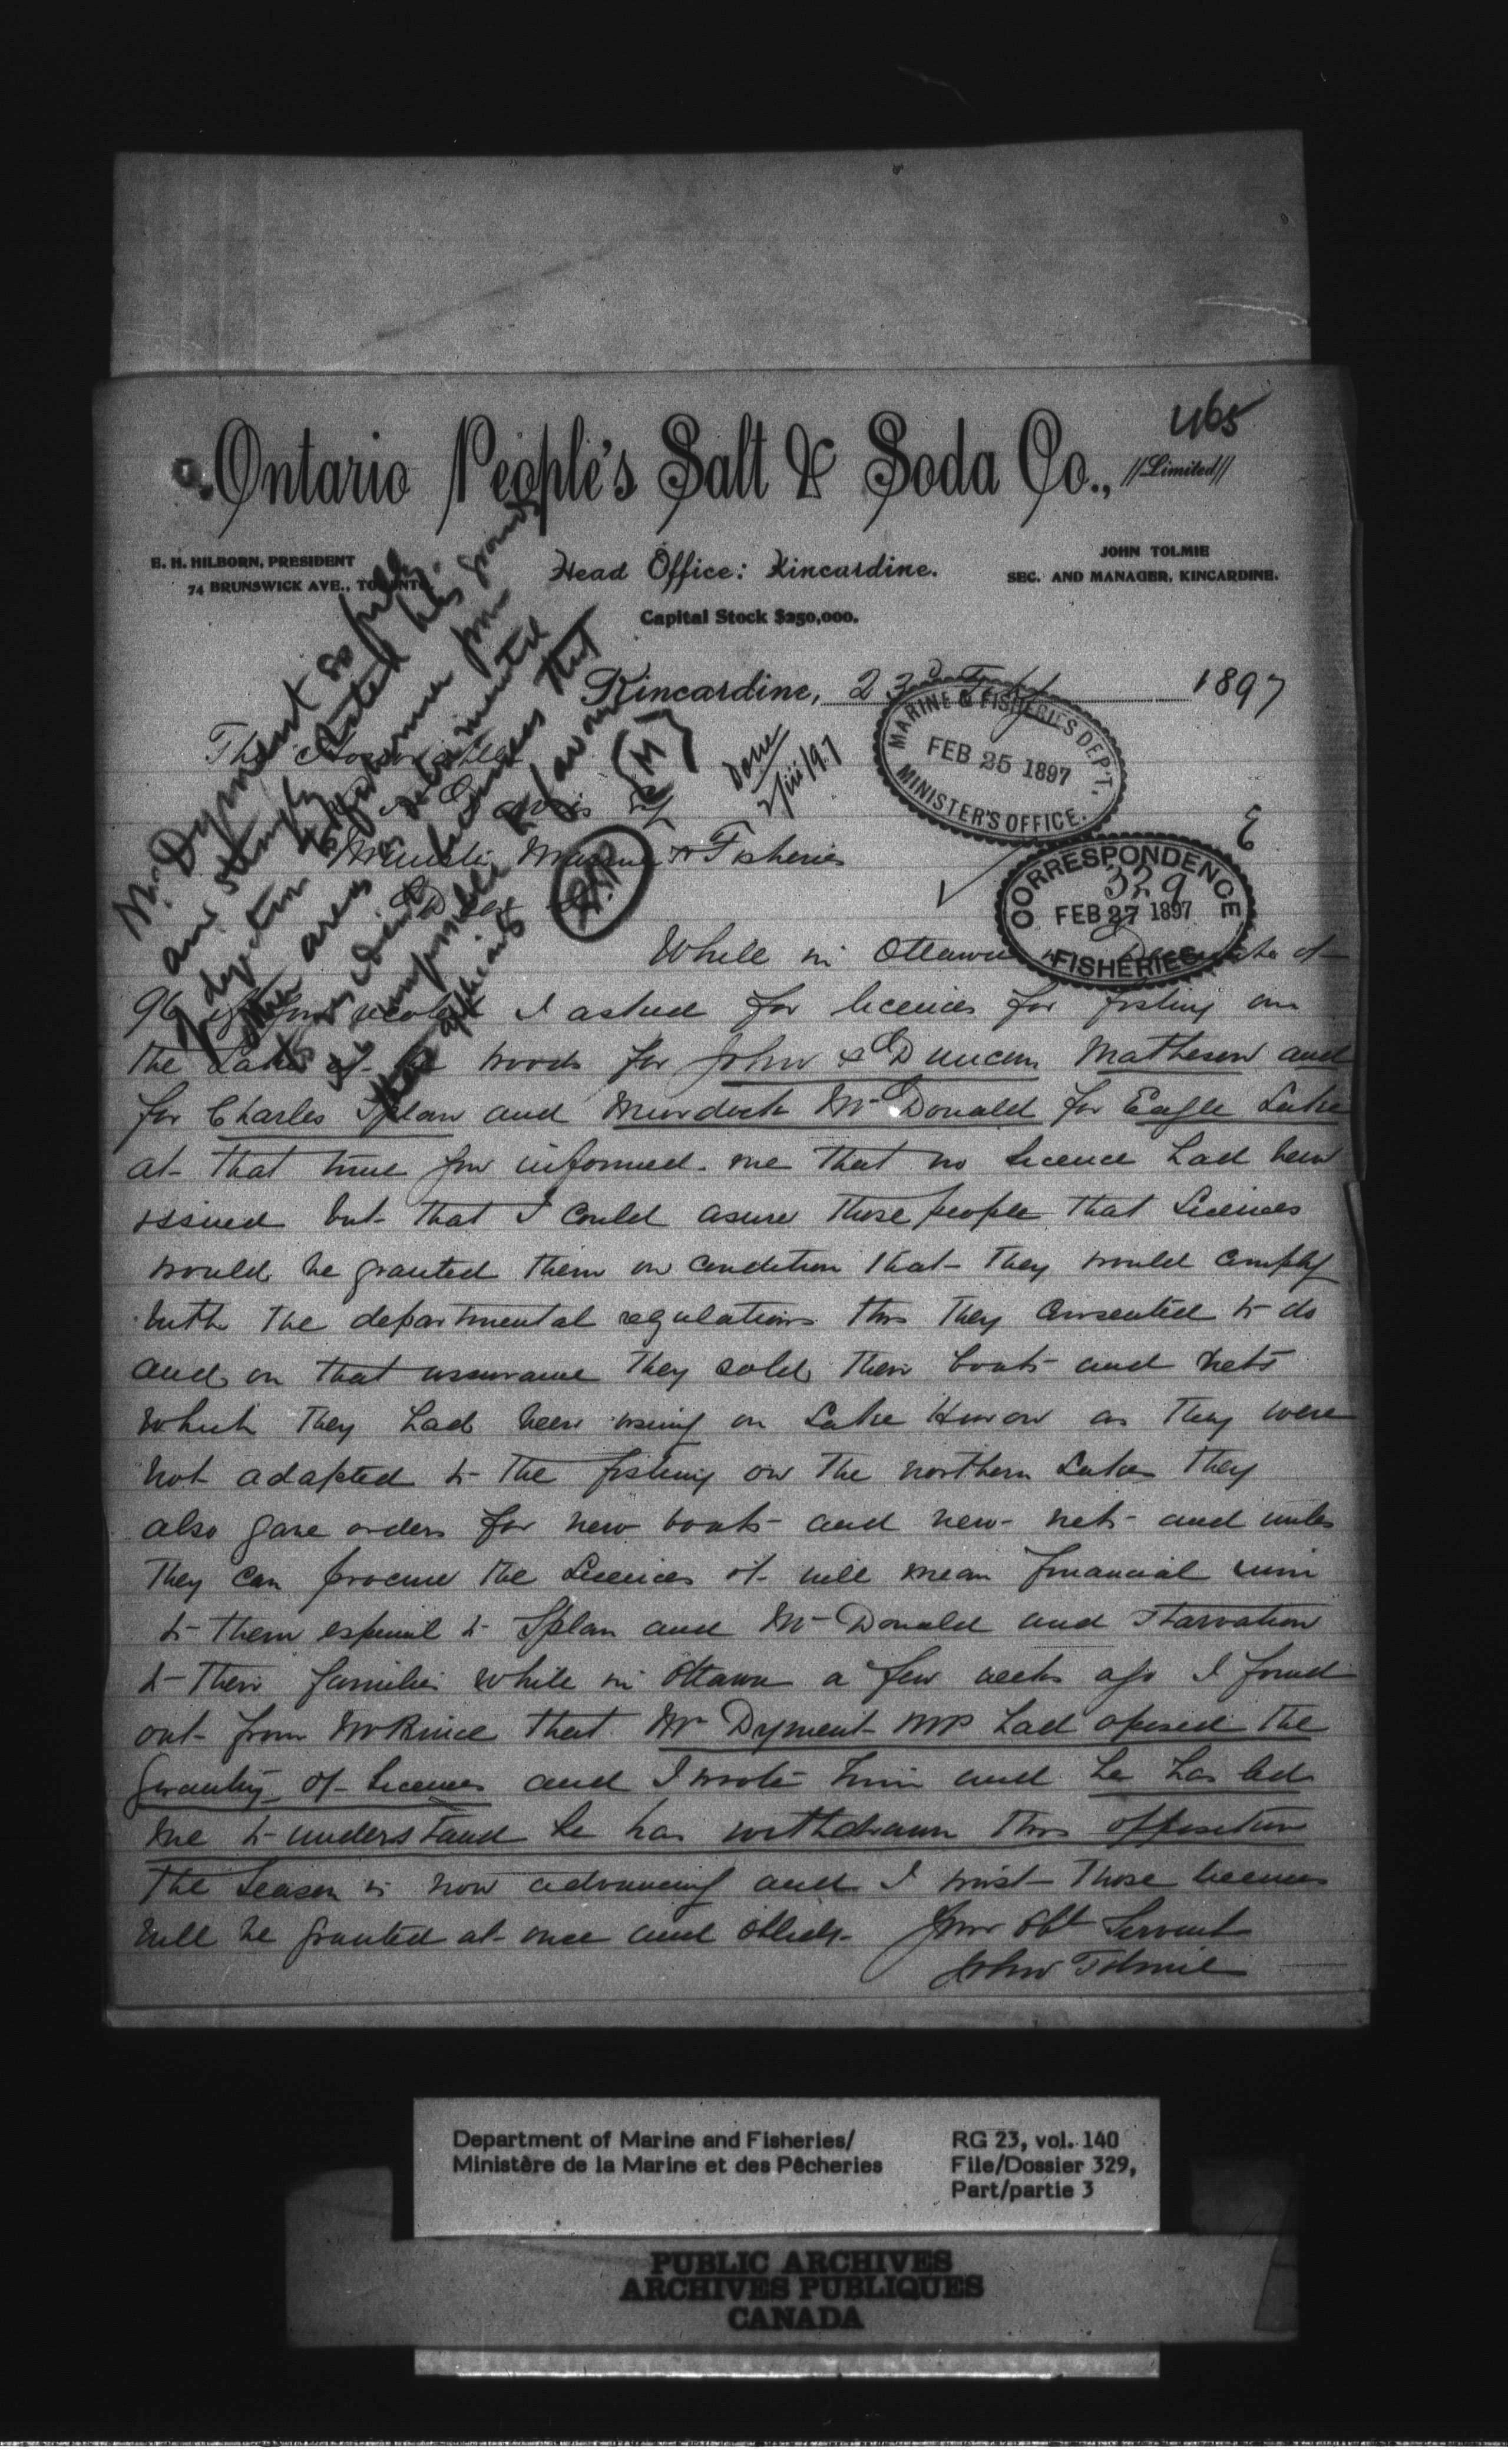 465
Ontario People's Salt & Soda Co., Limited
E. H. HILBORN, PRESIDENT
74 BRUNSWICK AVE., TORONTO.
Head Office: Kincardine.
JOHN TOLMIE
SEC. AND MANAGER, KINCARDINE.
Capital Stock $250,000.
Kincardine, 23d Feby 1897
MARINE & FISHERIES DEP'T.
FEB 25 1897
MINISTER'S OFFICE.
CORRESPONDENCE
329
FEB 27 1897
FISHERIES
Mr Dyment so fully
and strongly stated his grounds
of objection to fishermen from
other areas
that
favour
(M)
Done
2/iii/97
The Honorable
Davies
Minister Marine & Fisheries
Dear Sir
While in Ottawa in of
96 if you recolect I asked for licenies for fishing on
the Lake of the Woods for John & Duncan Matheson and
for Charles Splan and Murdoch McDonald for Eagle Lake
at that time you informed me that no licence had been
issued but that I could asure those people that Licenies
would be granted them on condition that they would comply
with the departmental regulations this they consented to do
and on that assurance they sold their boats and nets
which they had been using on Lake Huron as they were
not adapted to the fishing on the northern Lakes they
also gave orders for new boats and new nets and unless
they can procure the Licenies it will mean financial ruin
to them espeacil to Splan and McDonald and starvation
to their families while in Ottawa a few weeks ago I found
out from Mr Prince that Mr Dyment MP had oposed the
granting of Licenses and I wrote him and he has led
me to understand he has withdrawn this opposition
The Season is now advancing and I trust those licenses
will be granted at once and oblidge Your Obt Servant
John Tolmie
Department of Marine and Fisheries/
Ministère de la Marine et des Pêcheries
RG 23, vol. 140
File/Dossier 329,
Part/partie 3
PUBLIC ARCHIVES
ARCHIVES PUBLIQUES
CANADA